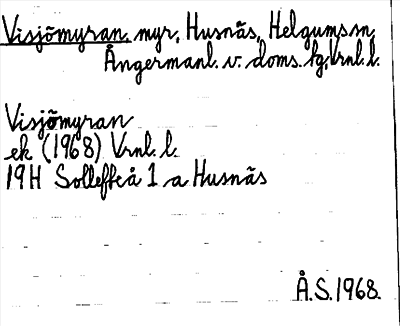 Visjömyran, myr, Husnäs, Helgums sn,
Ångermanl. v. doms. fg, Vrnl. l.
Visjömyran
ek (1968) Vrnl. l.
19H Sollefteå 1 a Husnäs
Å.S. 1968.